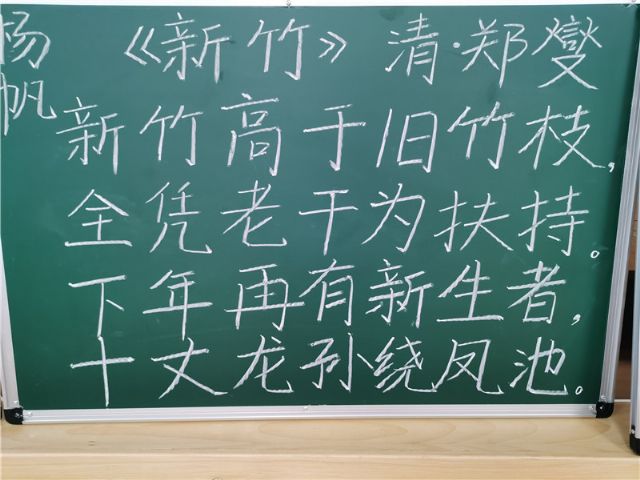 杨帆
《新竹》 清·郑燮
新竹高于旧竹枝,
全凭老干为扶持。
下年再有新生者,
十丈龙孙绕凤池。